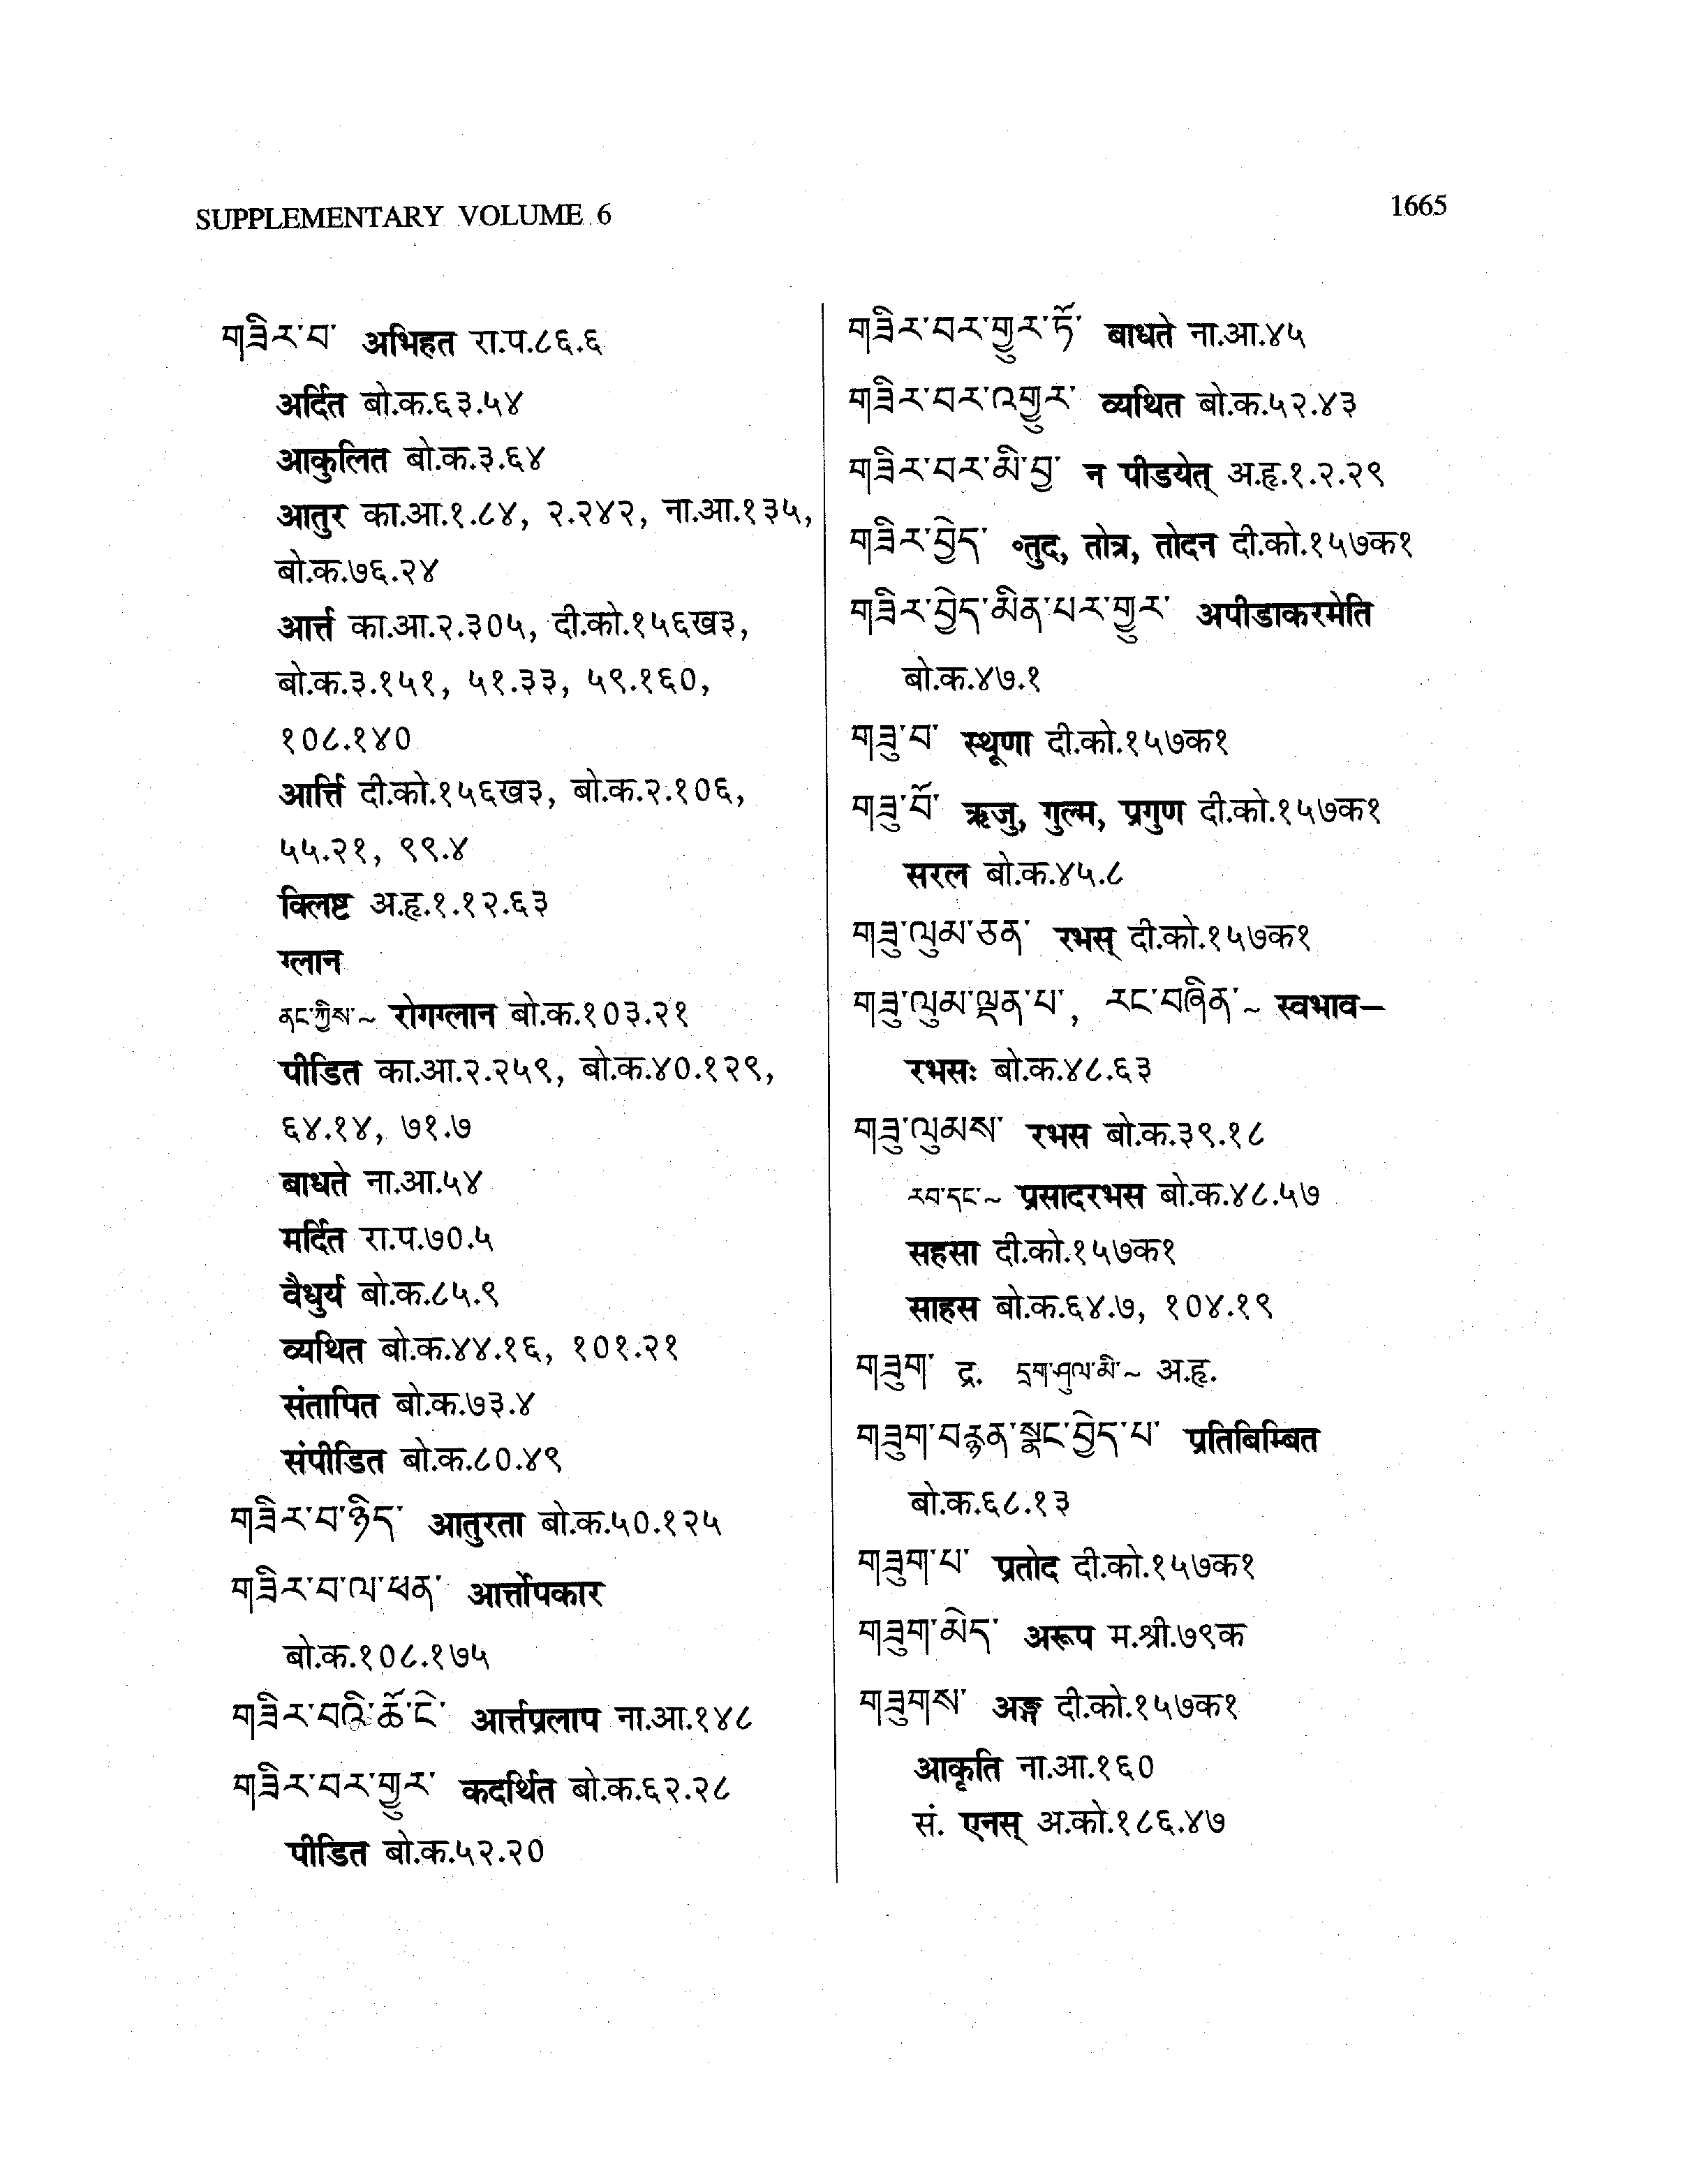 SUPPLEMENTARY VOLUME 6
1665
གཟིར་བ་ अभिहत रा.प.८६.६
अर्दित बो.क.६३.५४
आकुलित बो.क.३.६४
आतुर का.आ.१.८४, २.२४२, ना.आ.१३५,
बो.क.७६.२४
आर्त्त का.आ.२.३०५, दी.को.१५६ख३,
बो.क.३.१५१, ५१.३३, ५९.१६०,
१०८.१४०
आर्त्ति दी.को.१५६ख३, बो.क.२.१०६,
५५.२१, ९९.४
क्लिष्ट अ.हृ.१.१२.६३
ग्लान
ནད་ཀྱིས་~ रोगग्लान बो.क.१०३.२१
पीडित का.आ.२.२५९, बो.क.४०.१२९,
६४.१४, ७१.७
बाधते ना.आ.५४
मर्दित रा.प.७०.५
वैधुर्य बो.क.८५.९
व्यथित बो.क.४४.१६, १०१.२१
संतापित बो.क.७३.४
संपीडित बो.क.८०.४९
གཟིར་བ་ཉིད་ आतुरता बो.क.५०.१२५
གཟིར་བ་ལ་ཕན་ आर्त्तोपकार
बो.क.१०८.१७५
གཟིར་བའི་ཆོ་ངེ་ आर्त्तप्रलाप ना.आ.१४८
གཟིར་བར་གྱུར་ कदर्थित बो.क.६२.२८
पीडित बो.क.५२.२०
གཟིར་བར་གྱུར་ཏོ་ बाधते ना.आ.४५
གཟིར་བར་འགྱུར་ व्यथित बो.क.५२.४३
གཟིར་བར་མི་བྱ་ न पीडयेत् अ.हृ.१.२.२९
གཟིར་བྱེད་ ॰तुद, तोत्र, तोदन दी.को.१५७क१
གཟིར་བྱེད་མིན་པར་གྱུར་ अपीडाकरमेति
बो.क.४७.१
གཟུ་བ་ स्थूणा दी.को.१५७क१
གཟུ་བོ་ ऋजु, गुल्म, प्रगुण दी.को.१५७क१
सरल बो.क.४५.८
གཟུ་ལུམ་ཅན་ रभस् दी.को.१५७क१
གཟུ་ལུམ་ལྡན་པ་, རང་བཞིན་~ स्वभाव–
रभसः बो.क.४८.६३
གཟུ་ལུམས་ रभस बो.क.३९.१८
རབ་དང་~ प्रसादरभस बो.क.४८.५७
सहसा दी.को.१५७क१
साहस बो.क.६४.७, १०४.१९
གཟུག་ द्र. དྲག་ཤུལ་མི་~ अ.हृ.
གཟུག་བརྙན་སྣང་བྱེད་པ་ प्रतिबिम्बित
बो.क.६८.१३
གཟུག་པ་ प्रतोद दी.को.१५७क१
གཟུག་མེད་ अरूप म.श्री.७९क
གཟུགས་ अङ्ग दी.को.१५७क१
आकृति ना.आ.१६०
सं. एनस् अ.को.१८६.४७